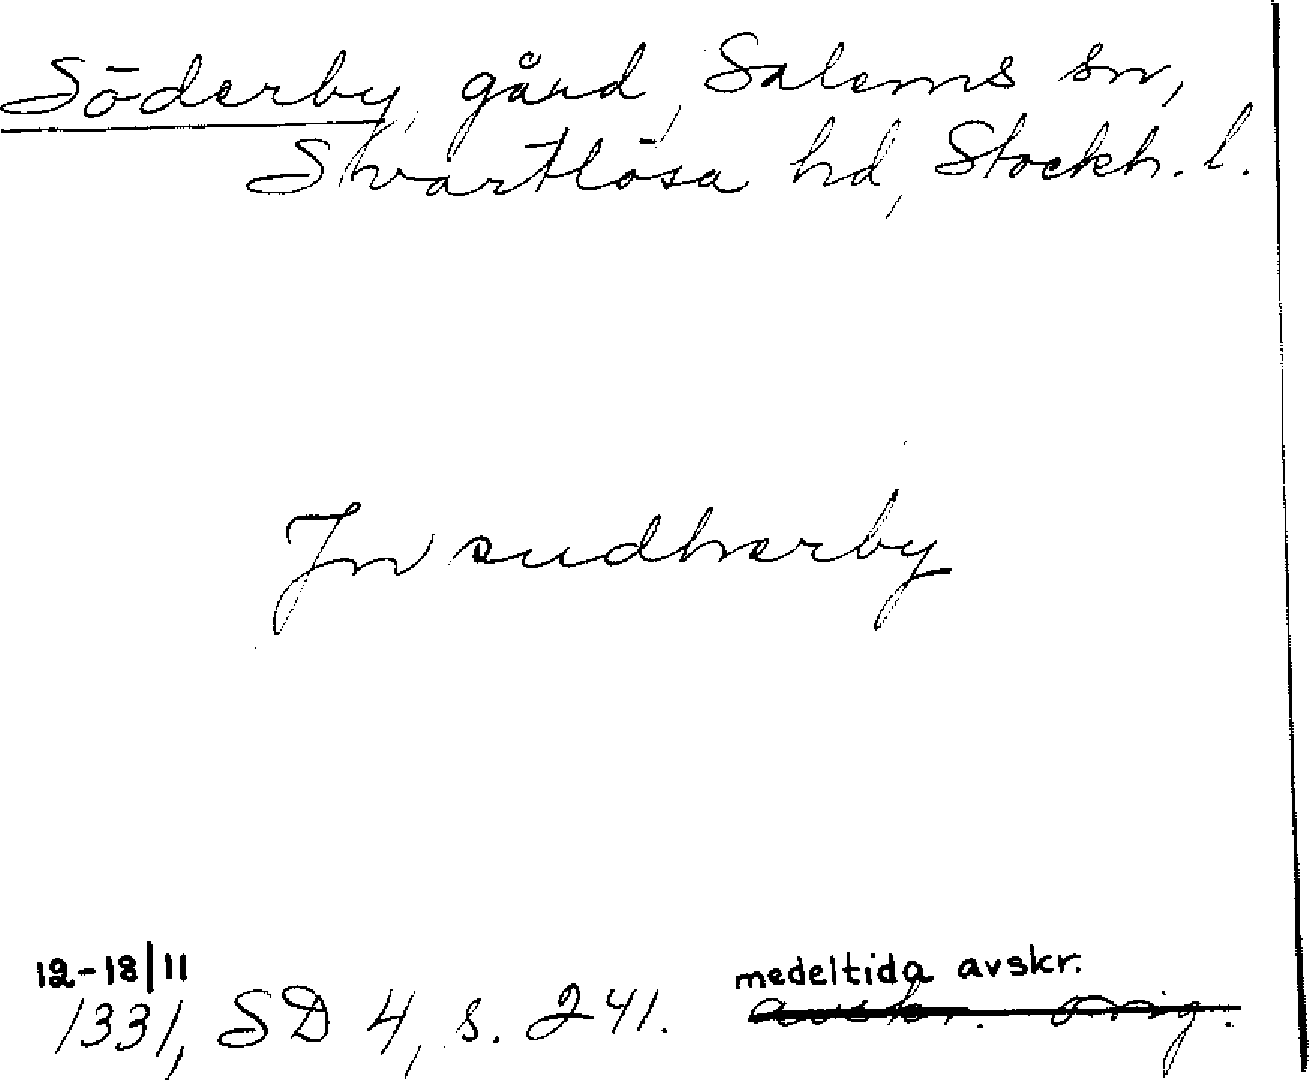 Söderby, gård, Salems sn,
Svartlösa hd, Stockh. l.
Jn sudherby
12-18/11
medeltida avskr.
1331, SD 4, s. 241.
avskr. orig.